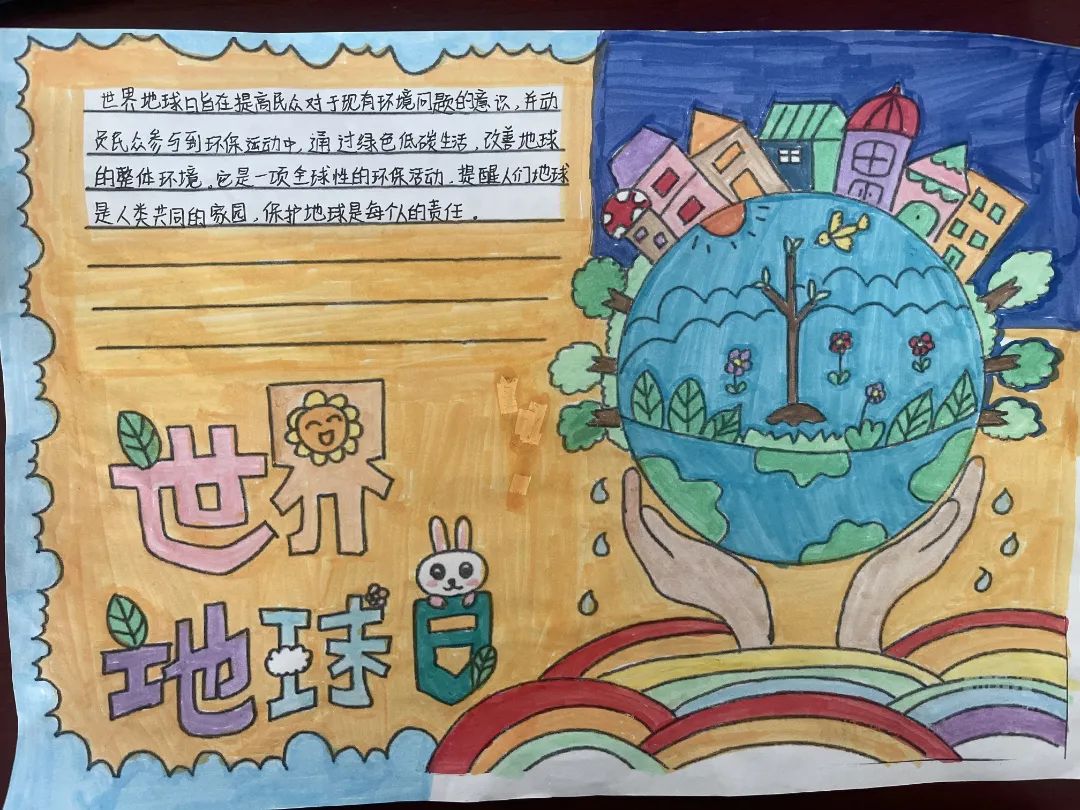 世界地球日旨在提高民众对于现有环境问题的意识，并动
员民众参与到环保运动中，通过绿色低碳生活，改善地球
的整体环境。它是一项全球性的环保活动，提醒人们地球
是人类共同的家园，保护地球是每个人的责任。
世界
地球日